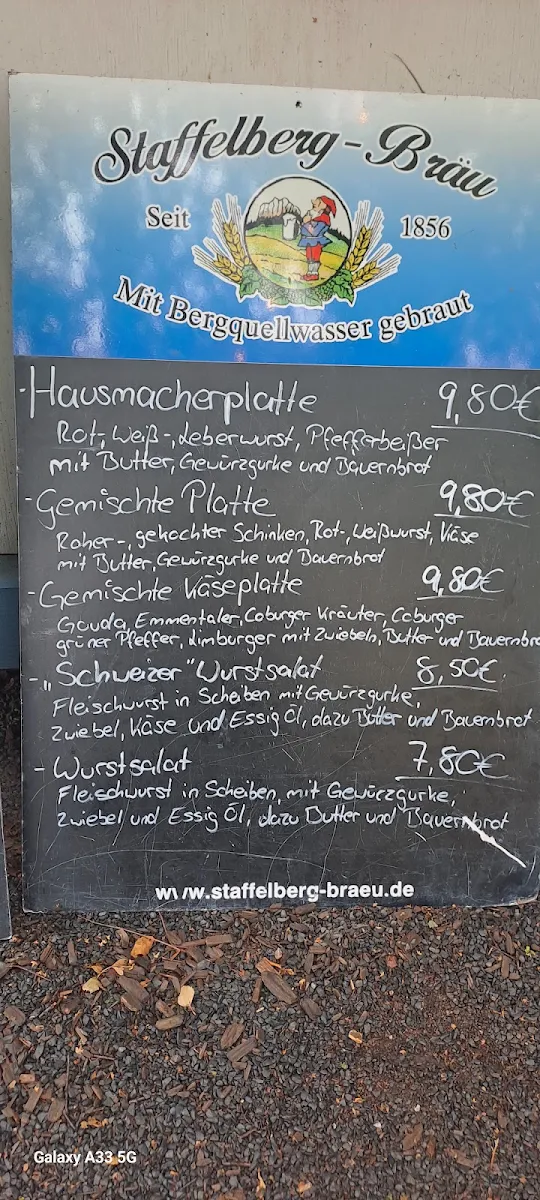 Staffelberg-Bräu
Seit 1856
Mit Bergquellwasser gebraut
- Hausmacherplatte 9,80€
Rot-, Weiß-, Leberwurst, Pfefferbeißer
mit Butter, Gewürzgurke und Bauernbrot
- Gemischte Platte 9,80€
Roher-, gekochter Schinken, Rot-, Weißwurst, Käse
mit Butter, Gewürzgurke und Bauernbrot
- Gemischte Käseplatte 9,80€
Gouda, Emmentaler, Coburger Kräuter, Coburger
grüner Pfeffer, Limburger mit Zwiebeln, Butter und Bauernbro
- „Schweizer" Wurstsalat 8,50€
Fleischwurst in Scheiben mit Gewürzgurke,
Zwiebel, Käse und Essig Öl, dazu Butter und Bauernbrot
- Wurstsalat 7,80€
Fleischwurst in Scheiben, mit Gewürzgurke,
Zwiebel und Essig Öl, dazu Butter und Bauernbrot
www.staffelberg-braeu.de
Galaxy A33 5G